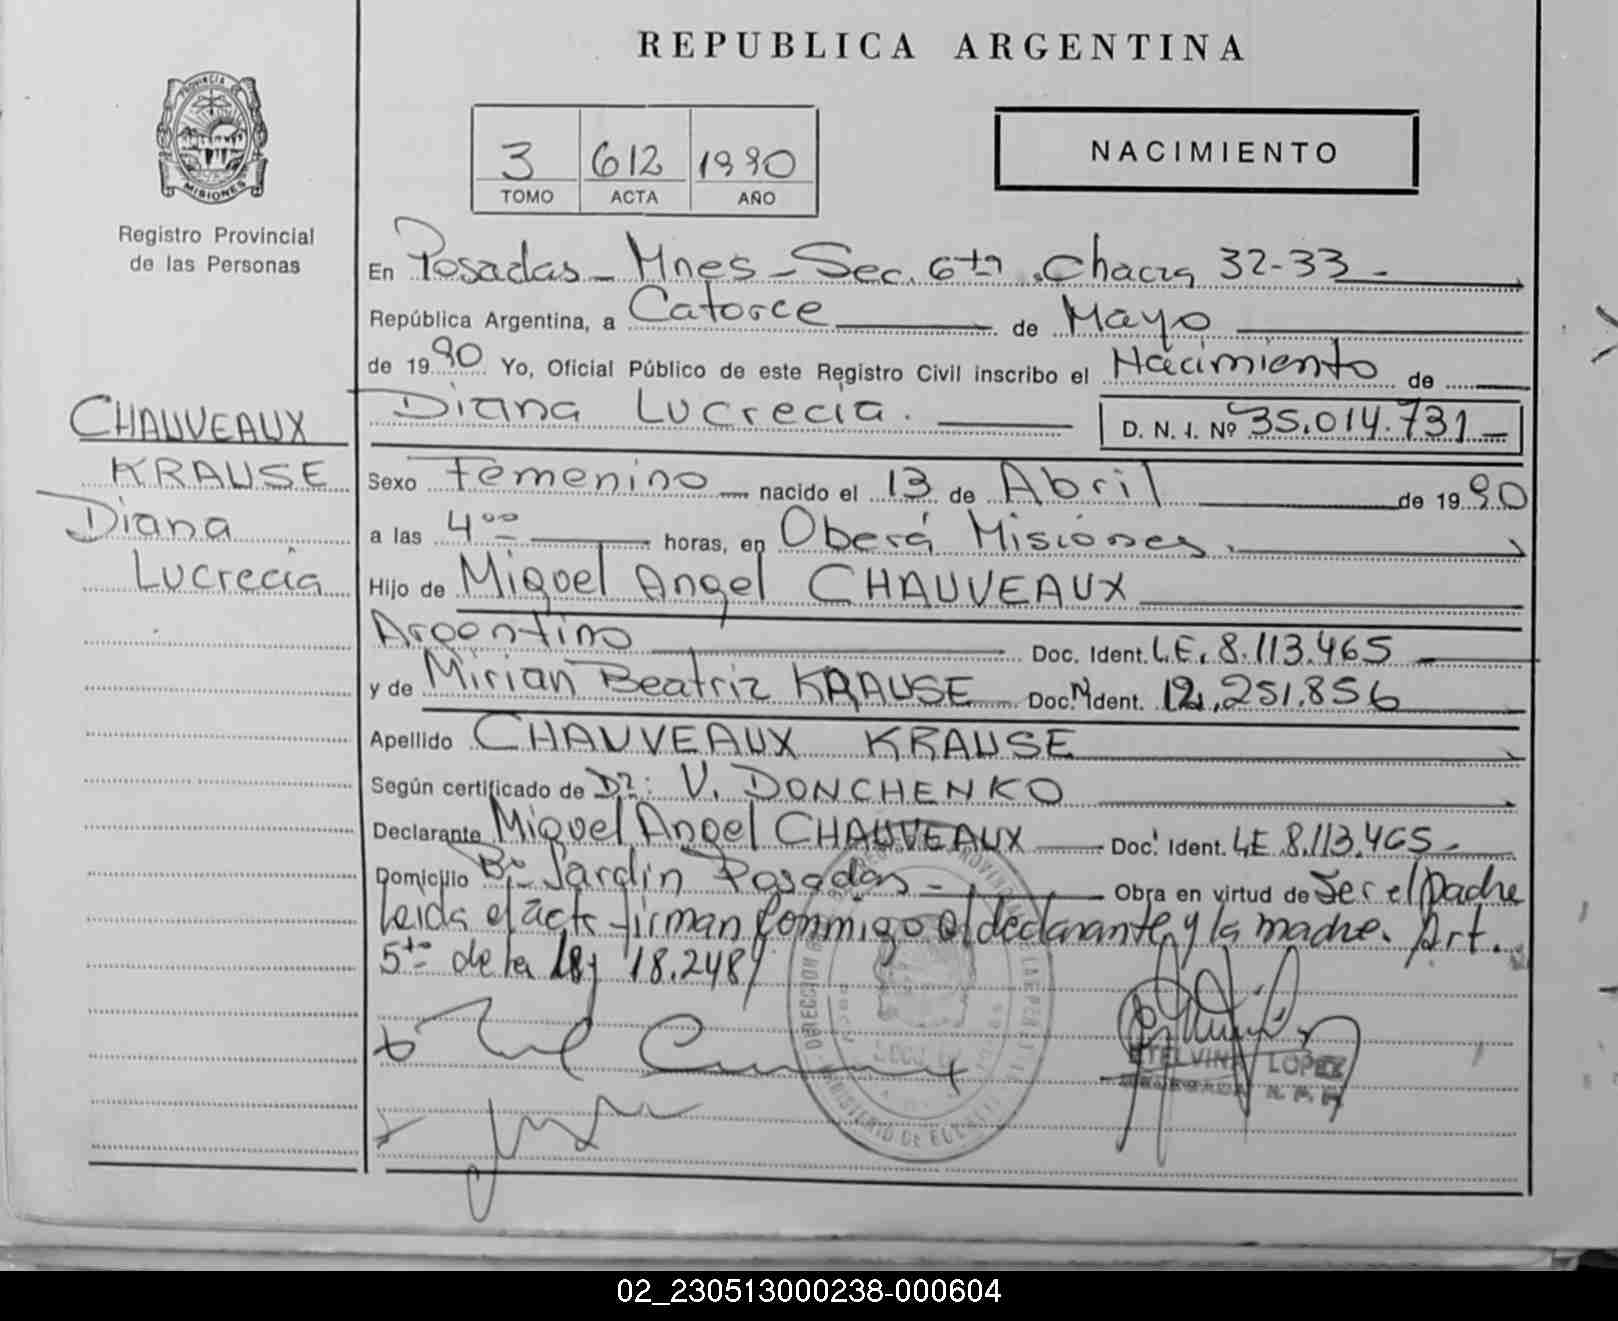 REPUBLICA ARGENTINA
PROVINCIA DE
MISIONES
Registro Provincial
de las Personas
3 612 1990
TOMO ACTA AÑO
NACIMIENTO
En Posadas - Mnes - Sec. 6ta. Chacra 32-33 -
República Argentina, a Catorce de Mayo
de 1990 Yo, Oficial Público de este Registro Civil inscribo el Nacimiento de
Diana Lucrecia. D. N. I. Nº 35.014.731 -
CHAUVEAUX
KRAUSE
Diana
Lucrecia
Sexo Femenino nacido el 13 de Abril de 1990
a las 4 00 horas, en Oberá Misiones.
Hijo de Miguel Angel CHAUVEAUX
Argentino Doc. Ident. L.E. 8.113.465
y de Mirian Beatriz KRAUSE Doc. Ident. 12.251.856
Apellido CHAUVEAUX KRAUSE
Según certificado de Dr: V. DONCHENKO
Declarante Miguel Angel CHAUVEAUX Doc. Ident. LE 8.113.465 -
Domicilio Bº Jardin Posadas - Obra en virtud de Ser el padre
leida el acta firman conmigo el declarante y la madre. Art.
5to de la ley 18.248/
ETELVINA LOPEZ
02_230513000238-000604